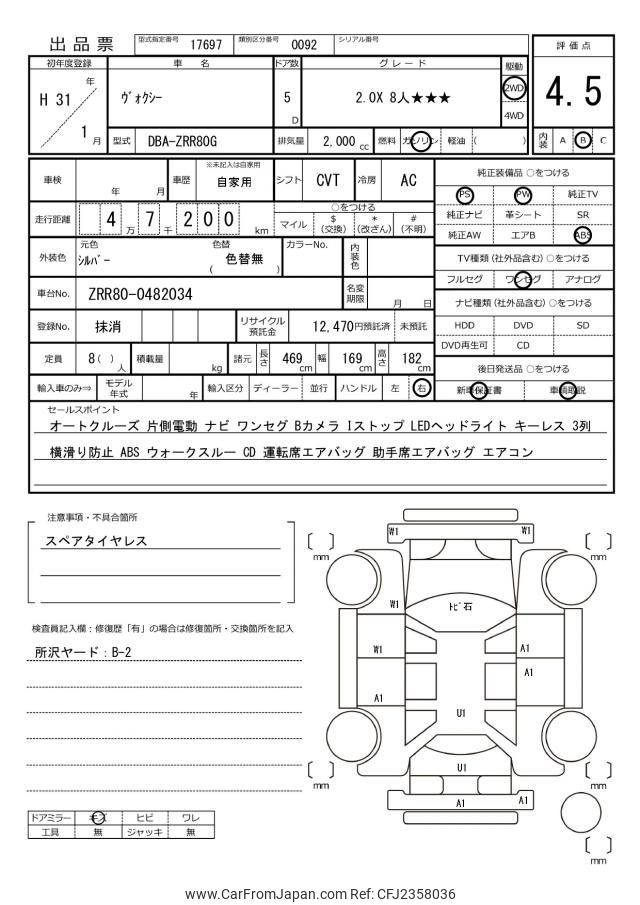 出品票 型式指定番号 17697 類別区分番号 0092 シリアル番号
評価点
4.5
内装 A B C
初年度登録 車名 ドア数 グレード 駆動
H 31 年 / 1 月
ヴォクシー 5 D 2.0X 8人★★★ 2WD
4WD
型式 DBA-ZRR80G 排気量 2,000 cc 燃料 ガソリン 軽油 ( )
車検 年 月 車歴 ※未記入は自家用 自家用 シフト CVT 冷房 AC
走行距離 4 万 7 千 2 0 0 km
○をつける
マイル $ (交換) * (改ざん) # (不明)
外装色 元色 シルバー 色替 ( 色替無 ) カラーNo. 内装色
車台No. ZRR80-0482034 名変期限 月 日
登録No. 抹消 リサイクル預託金 12,470円預託済 未預託
定員 8 ( ) 人 積載量 kg 諸元 長さ 469 cm 幅 169 cm 高さ 182 cm
輸入車のみ⇒ モデル年式 年 輸入区分 ディーラー 並行 ハンドル 左 右
純正装備品 ○をつける
PS PW 純正TV
純正ナビ 革シート SR
純正AW エアB ABS
TV種類 (社外品含む) ○をつける
フルセグ ワンセグ アナログ
ナビ種類 (社外品含む) ○をつける
HDD DVD SD
DVD再生可 CD
後日発送品 ○をつける
新車保証書 車輌取説
セールスポイント
オートクルーズ 片側電動 ナビ ワンセグ Bカメラ Iストップ LEDヘッドライト キーレス 3列
横滑り防止 ABS ウォークスルー CD 運転席エアバッグ 助手席エアバッグ エアコン
注意事項・不具合箇所
スペアタイヤレス
検査員記入欄：修復歴「有」の場合は修復箇所・交換箇所を記入
所沢ヤード：B-2
ドアミラー キズ ヒビ ワレ
工具 無 ジャッキ 無
W1 W1
mm mm
W1 トビ石
W1 A1
A1
A1
U1
U1
mm mm
A1 A1
mm
www.CarFromJapan.com Ref: CFJ2358036